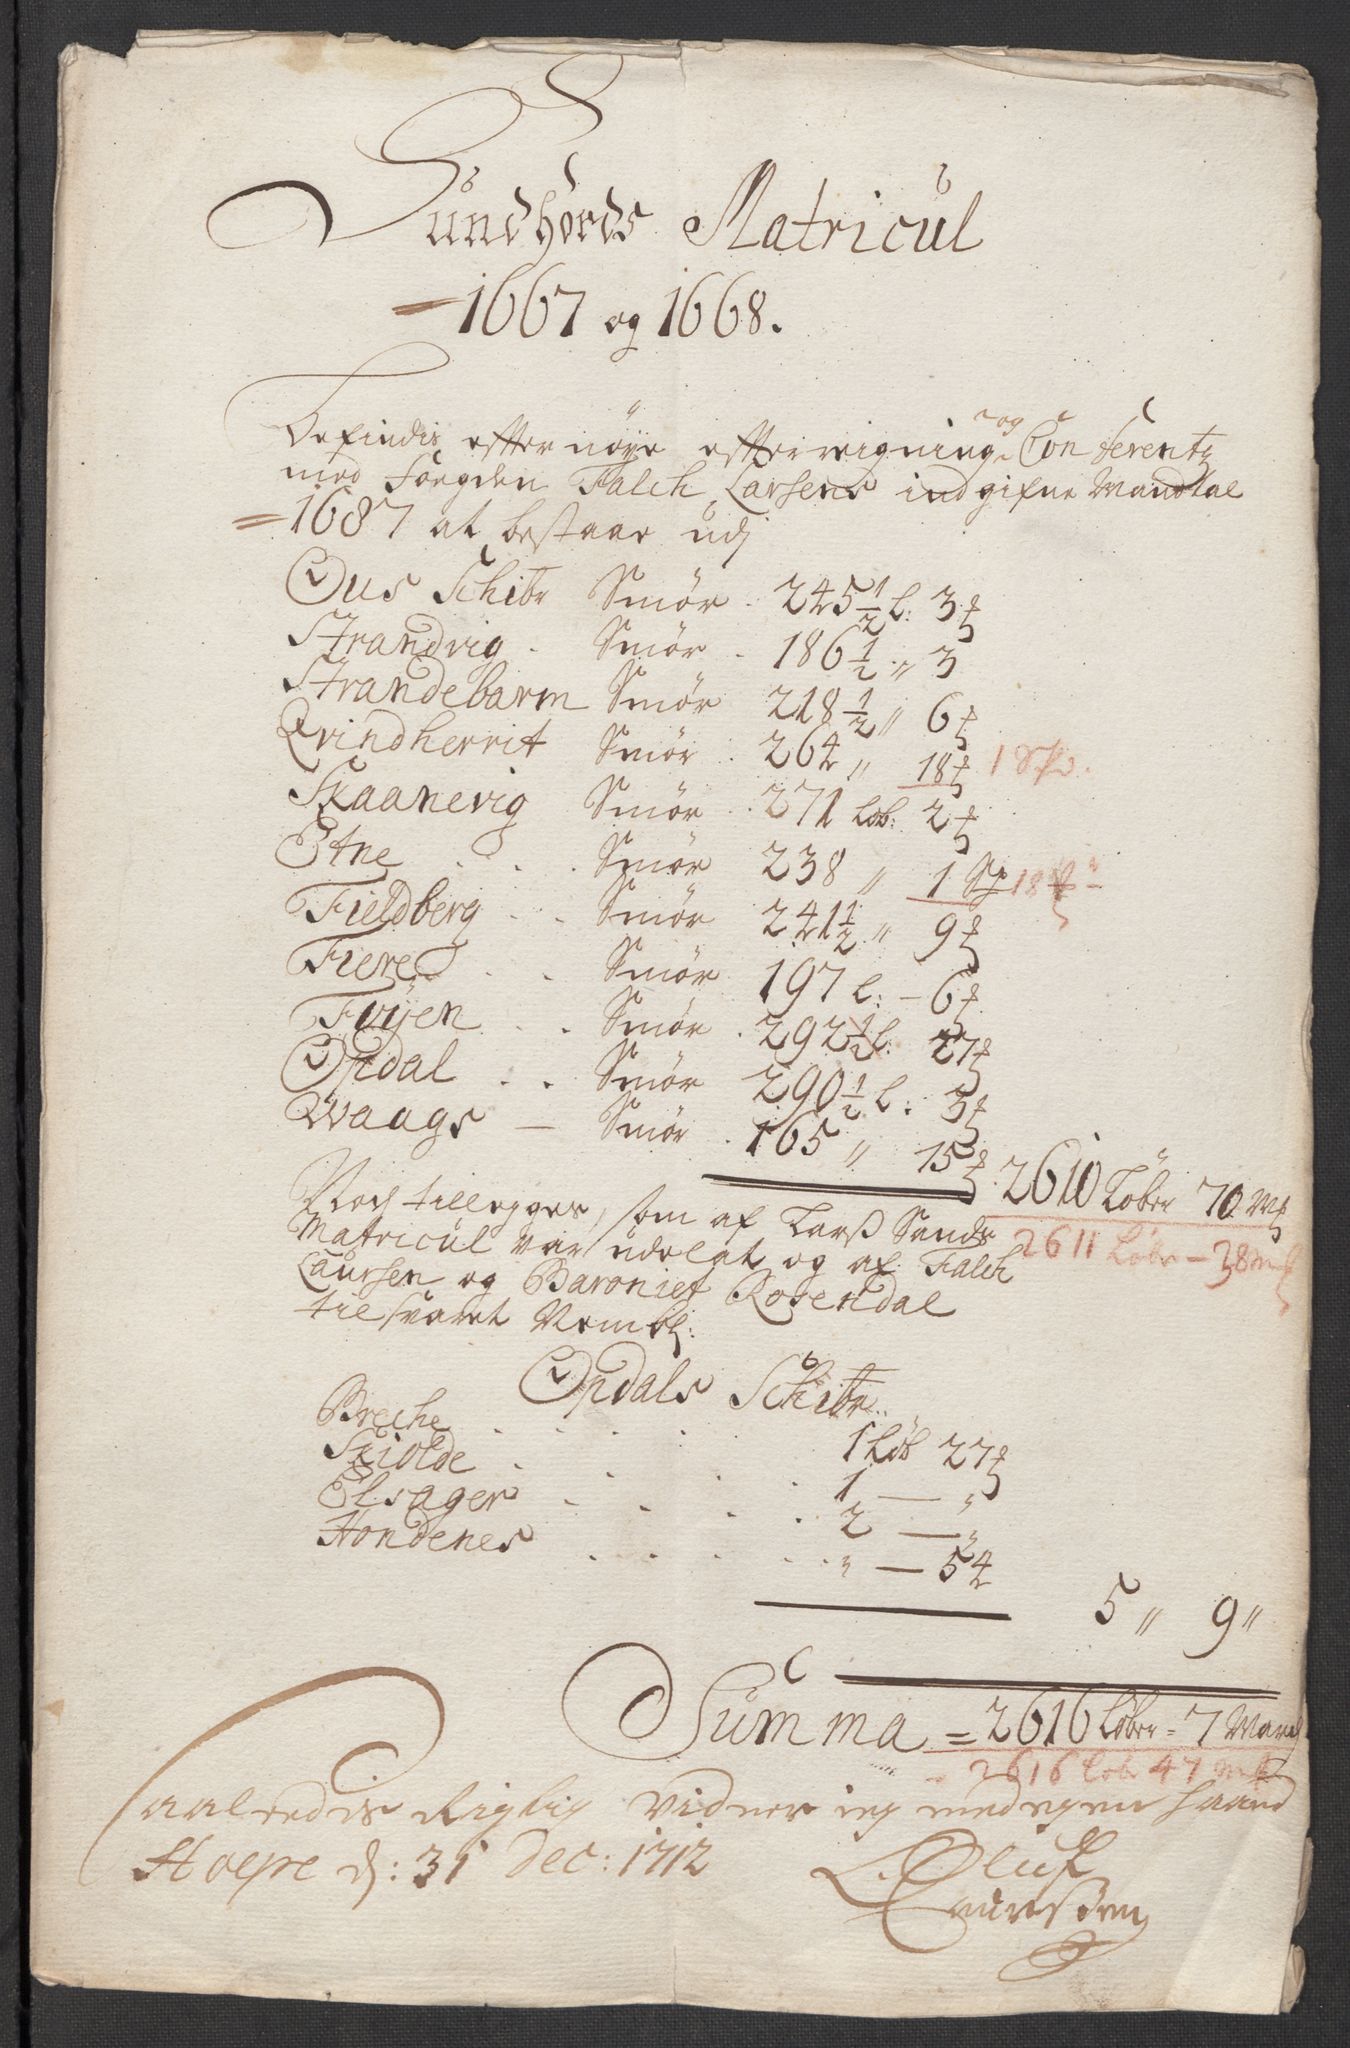 Sundhords Matricul
1667 og 1668.
Befindis efter nøye efterreigning og Conferentz
med Foegden Falch Larsens indgifne Mandtal
1687 at bestaar udj
Ous Schibr Smør 245½ l: 3 ℔
Strandvig Smør 186½ „ 3
Strandebarm Smør 218½ „ 6 ℔
Qvindherrit Smør 264 „ 18 ℔ 1 Spd.
Skaanevig Smør 271 Løb: 2 ℔
Etne Smør 238 „ 1 Sp 18 ℔
Fieldberg Smør 241½ „ 9 ℔
Fiere Smør 197 l: 6 ℔
Føyen Smør 292½ l: 27 ℔
Opdal Smør 290½ l: 3 ℔
Waags Smør 165 „ 15 ℔
2610 Løber 70 M℔
2611 Løbr - 38 m℔
Noch tillegges, som af Larss Sands
Matricul var udelat og af Falch
Laursen og Baroniet Rosendal
tilsvaret Nembl:
Opdals Schibr
Breche 1 Løb 27 ℔
Skiolde 1 — „
Elsager 2 — „
Hondenes „ — 54
5 „ 9 „
Summa = 2616 Løber = 7 Marck
2616 Løbr 47 m℔
Saaledis Rigtig vidner ieg med egen Haand
Hoepe d: 31 Dec: 1712
Oluf
Laurssen